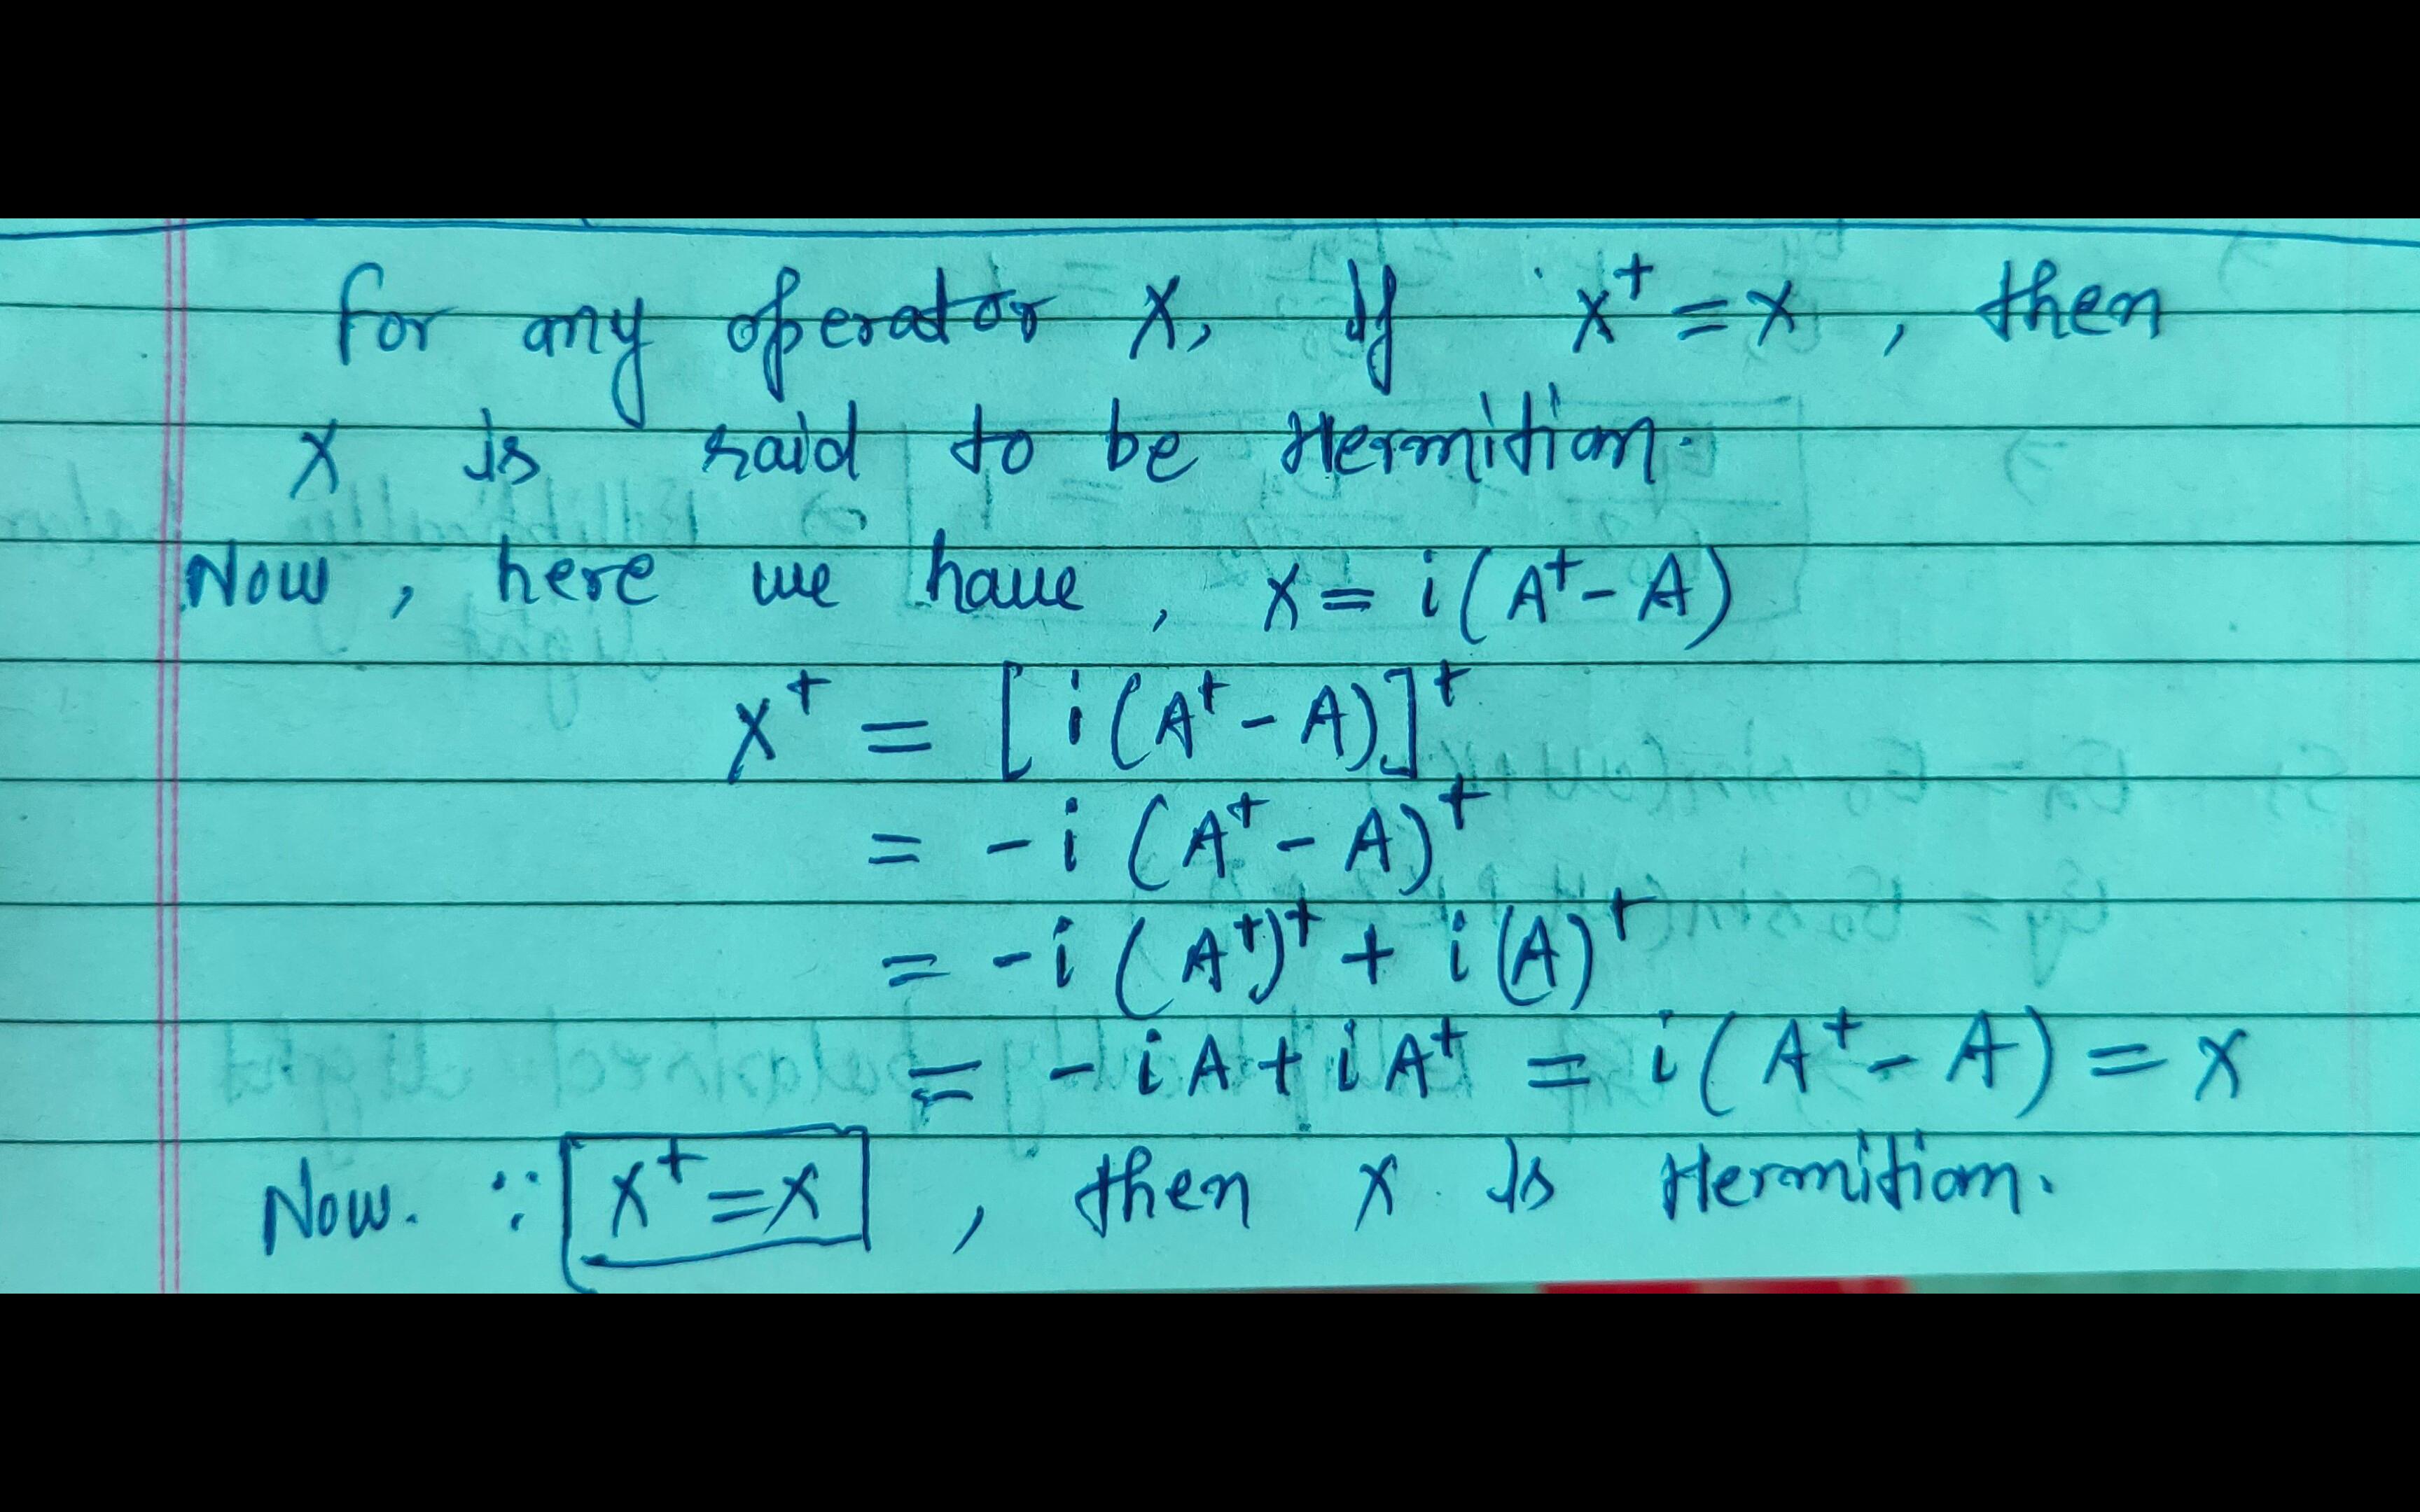 for any operator X, If X† = X, then
X is said to be Hermitian.
Now, here we have, X = i(A† - A)
X† = [i(A† - A)]†
= -i (A† - A)†
= -i (A†)† + i(A)†
= -iA + iA† = i(A† - A) = X
Now. ∵ X† = X, then X is Hermitian.